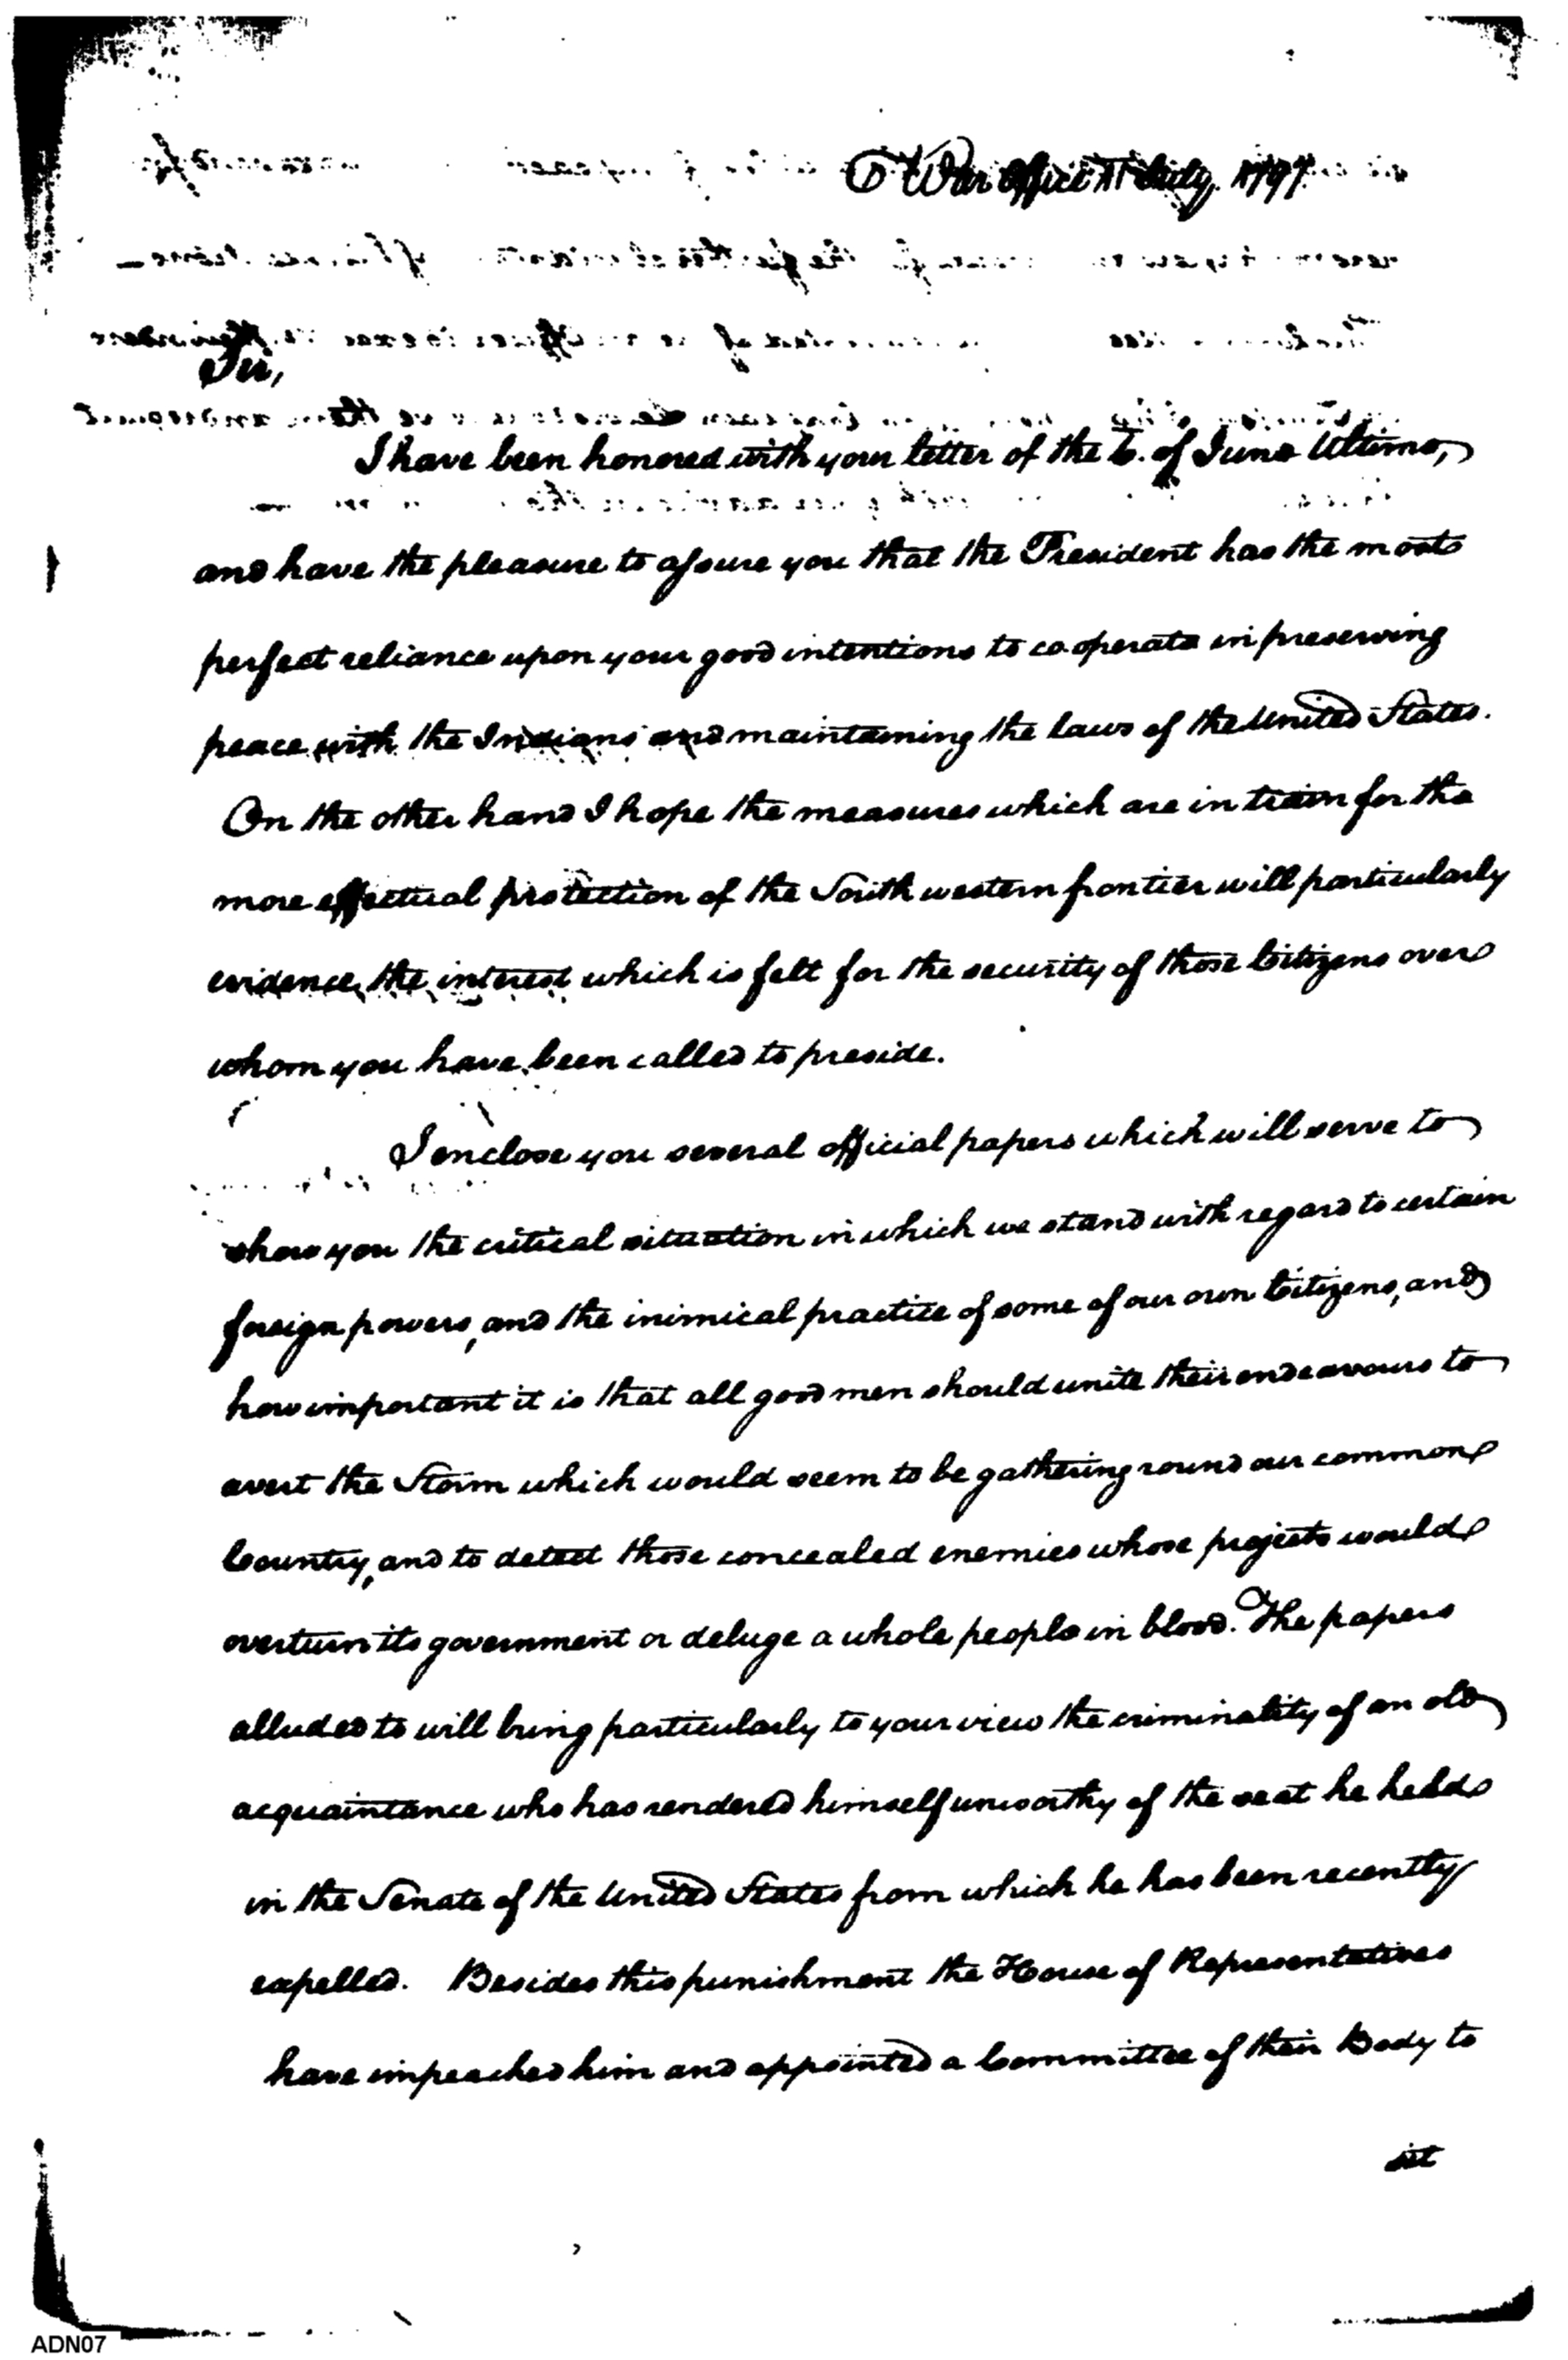 War Office 11 July 1797
Sir,
I have been honored with your letter of the 6. of June Ultimo,
and have the pleasure to assure you that the President has the most
perfect reliance upon your good intentions to co operate in preserving
peace with the Indians and maintaining the laws of the United States.
On the other hand I hope the measures which are in train for the
more effectual protection of the South western frontier will particularly
evidence the interest which is felt for the security of those Citizens over
whom you have been called to preside.
I enclose you several official papers which will serve to
show you the critical situation in which we stand with regard to certain
foreign powers, and the inimical practice of some of our own Citizens, and
how important it is that all good men should unite their endeavours to
avert the Storm which would seem to be gathering round our common
Country, and to detect those concealed enemies whose projects would
overturn its government or deluge a whole people in blood. The papers
alluded to will bring particularly to your view the criminality of an old
acquaintance who has rendered himself unworthy of the seat he held
in the Senate of the United States from which he has been recently
expelled. Besides this punishment the House of Representatives
have impeached him and appointed a Committee of their Body to
sit
ADN07